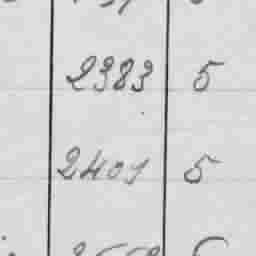 2383 5
2401 5